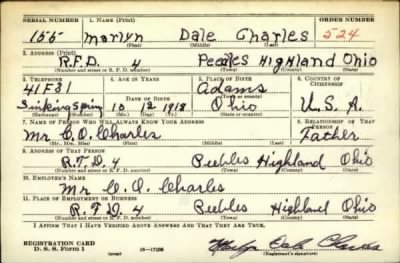 SERIAL NUMBER 1. NAME (Print) ORDER NUMBER
155 Marlyn Dale Charles 524
(First) (Middle) (Last)
2. ADDRESS (Print)
R.F.D. 4 Peebles Highland Ohio
(Number and street or R. F. D. number) (Town) (County) (State)
3. TELEPHONE 4. AGE IN YEARS 5. PLACE OF BIRTH 6. COUNTRY OF CITIZENSHIP
41F31 Adams
Sinking Spring 10 12 1918 Ohio U.S.A.
(Exchange) (Number) (Mo.) (Day) (Yr.) (State or country)
7. NAME OF PERSON WHO WILL ALWAYS KNOW YOUR ADDRESS 8. RELATIONSHIP OF THAT PERSON
Mr C.O. Charles Father
9. ADDRESS OF THAT PERSON
R.F.D. 4 Peebles Highland Ohio
(Number and street or R. F. D. number) (Town) (County) (State)
10. EMPLOYER'S NAME
Mr C.O. Charles
11. PLACE OF EMPLOYMENT OR BUSINESS
R.F.D. 4 Peebles Highland Ohio
(Number and street or R. F. D. number) (Town) (County) (State)
I AFFIRM THAT I HAVE VERIFIED ABOVE ANSWERS AND THAT THEY ARE TRUE.
REGISTRATION CARD
D. S. S. Form 1 (over) Marlyn Dale Charles